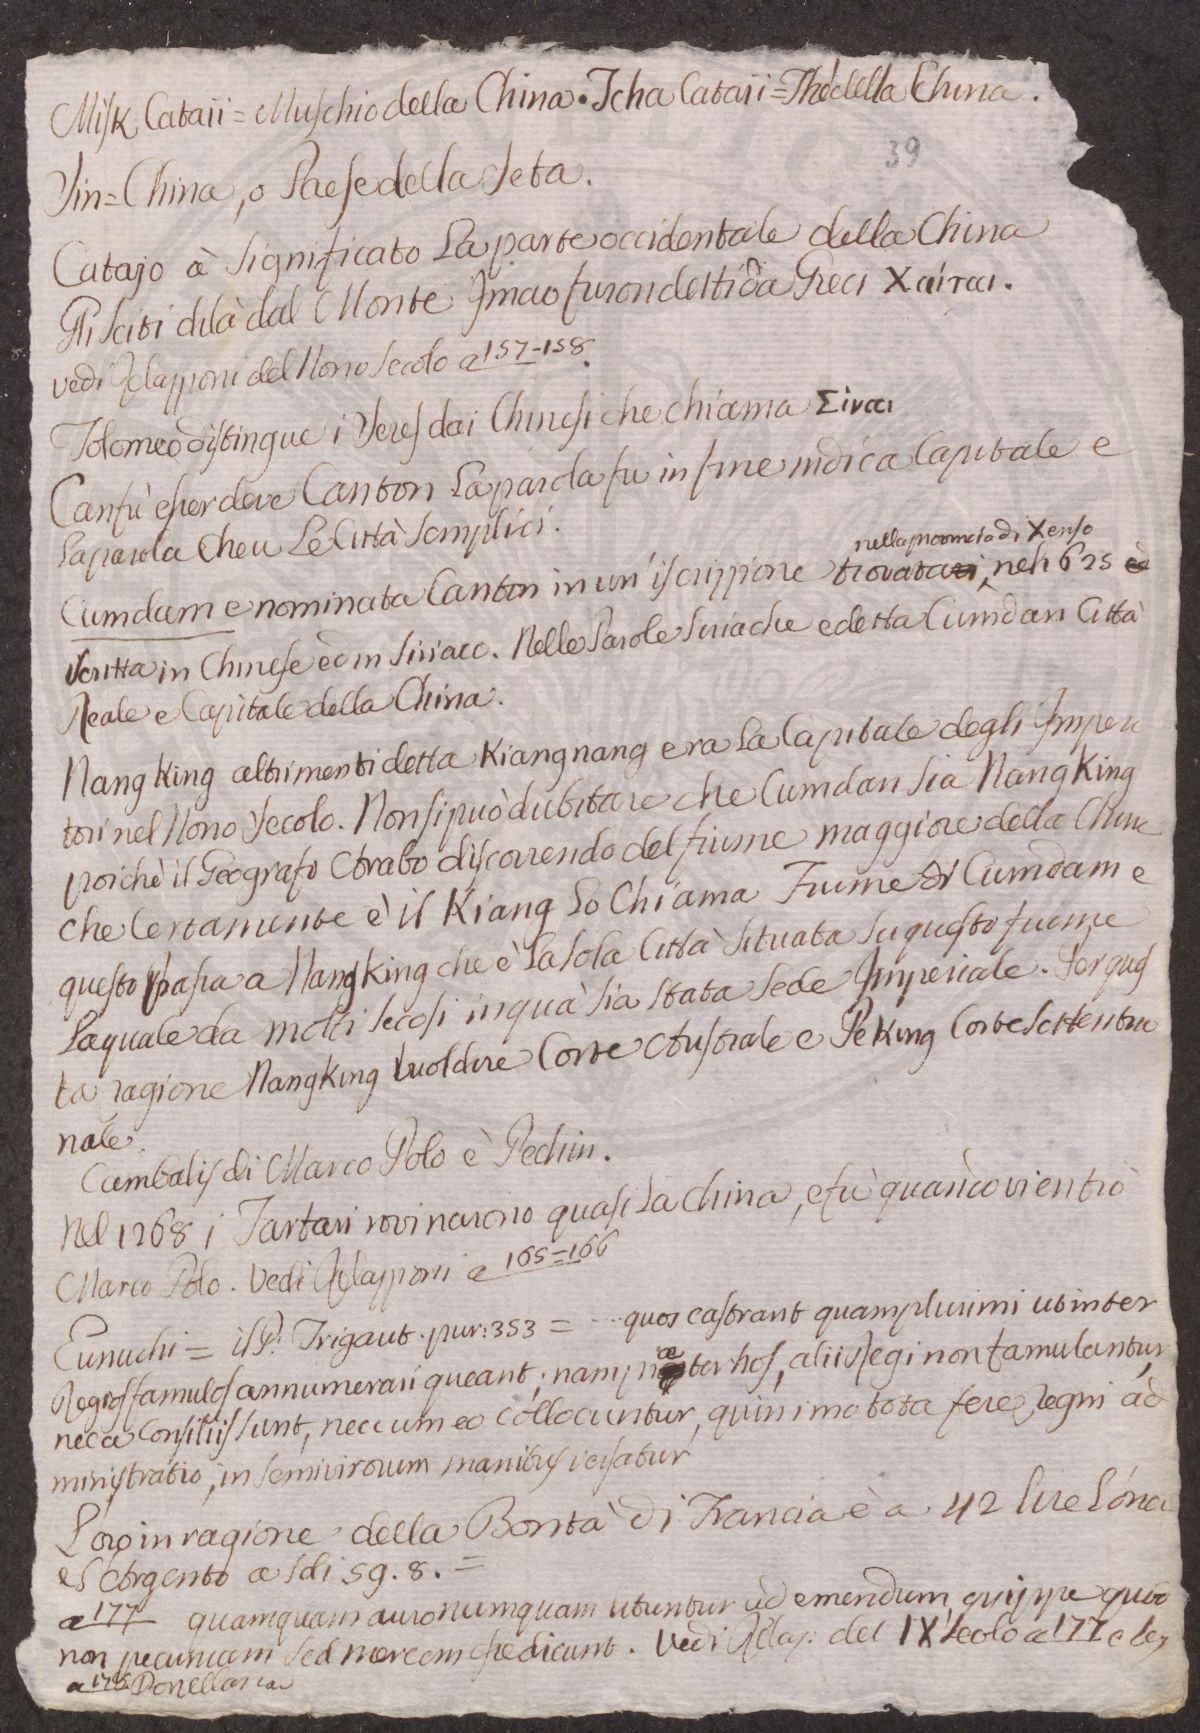 Misk Cataii = Muschio della China. Tcha Cataii = Thè della China.
39
Sin = China, o Paese della Seta.
Catajo à significato la parte occidentale della China
Gli Sciti di là dal Monte Imao furon detti da Greci Χαίται.
vedi Relazzoni del Nono Secolo a 157-158.
Tolomeo distingue i Seres dai Chinesi che chiama Σίναι
Canfù esser deve Canton la parola fu in fine indica Capitale e
la parola Cheu le Città semplici.
nella provincia di Xenso
Cumdam e nominata Canton in un' iscrizzione trovata, nel 625 ed
scritta in Chinese ed in Siriaco. Nelle Parole Siriache e detta Cumdan Città
Reale e Capitale della China.
Nang King altrimenti detta Kiangnang era la Capitale degli Impera
tori nel Nono Secolo. Non si può dubitare che Cumdan sia Nang King
poichè il Geografo Arabo discorrendo del fiume maggiore della China
che Certamente è il Kiang lo Chiama Fiume di Cumdam e
questo passa a Nangking che è la sola Città situata su questo fiume
la quale da molti secoli in quà sia stata sede Imperiale. Per ques
ta ragione Nangking vuol dire Corte Australe e Peking Corte Settentrio
nale.
Cambalis di Marco Polo è Pechin.
Nel 1268 i Tartari rovinarono quasi la China, e fù quando vi entrò
Marco Polo. Vedi Relazzoni a 165-166
Eunuchi = il P. Trigaut. pur: 353 = ... quos castrant quamplurimi ut inter
Regios famulos annumerari queant; nam præter hos, alii Regi non famulantur,
nec a Consiliis sunt, nec cum eo collocuntur, quinimo tota fere Regni ad
ministratio, in semivirorum manibus versatur
L'oro in ragione della Bontà di Francia è a 42 lire l'oncia
e l'Argento a ldi 59. 8. =
a 177 quamquam auro numquam utuntur ad emendum, quippe quod
non pecuniam sed mercem esse dicunt. Vedi Relaz: del IX Secolo a 177 e
a 178